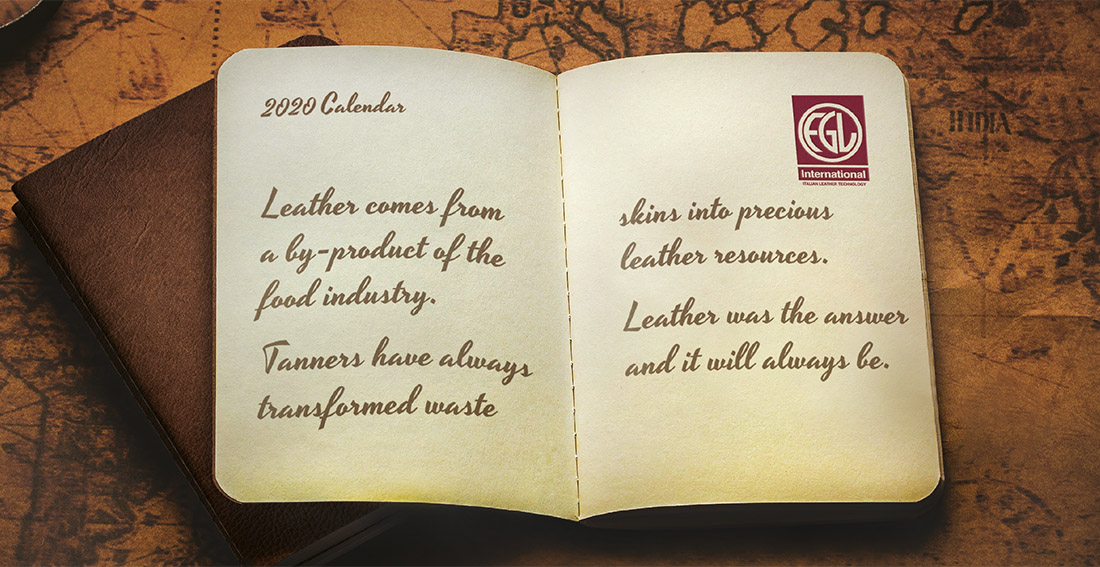 2020 Calendar
Leather comes from
a by-product of the
food industry.
Tanners have always
transformed waste
EGL
International
ITALIAN LEATHER TECHNOLOGY
skins into precious
leather resources.
Leather was the answer
and it will always be.
INDIA